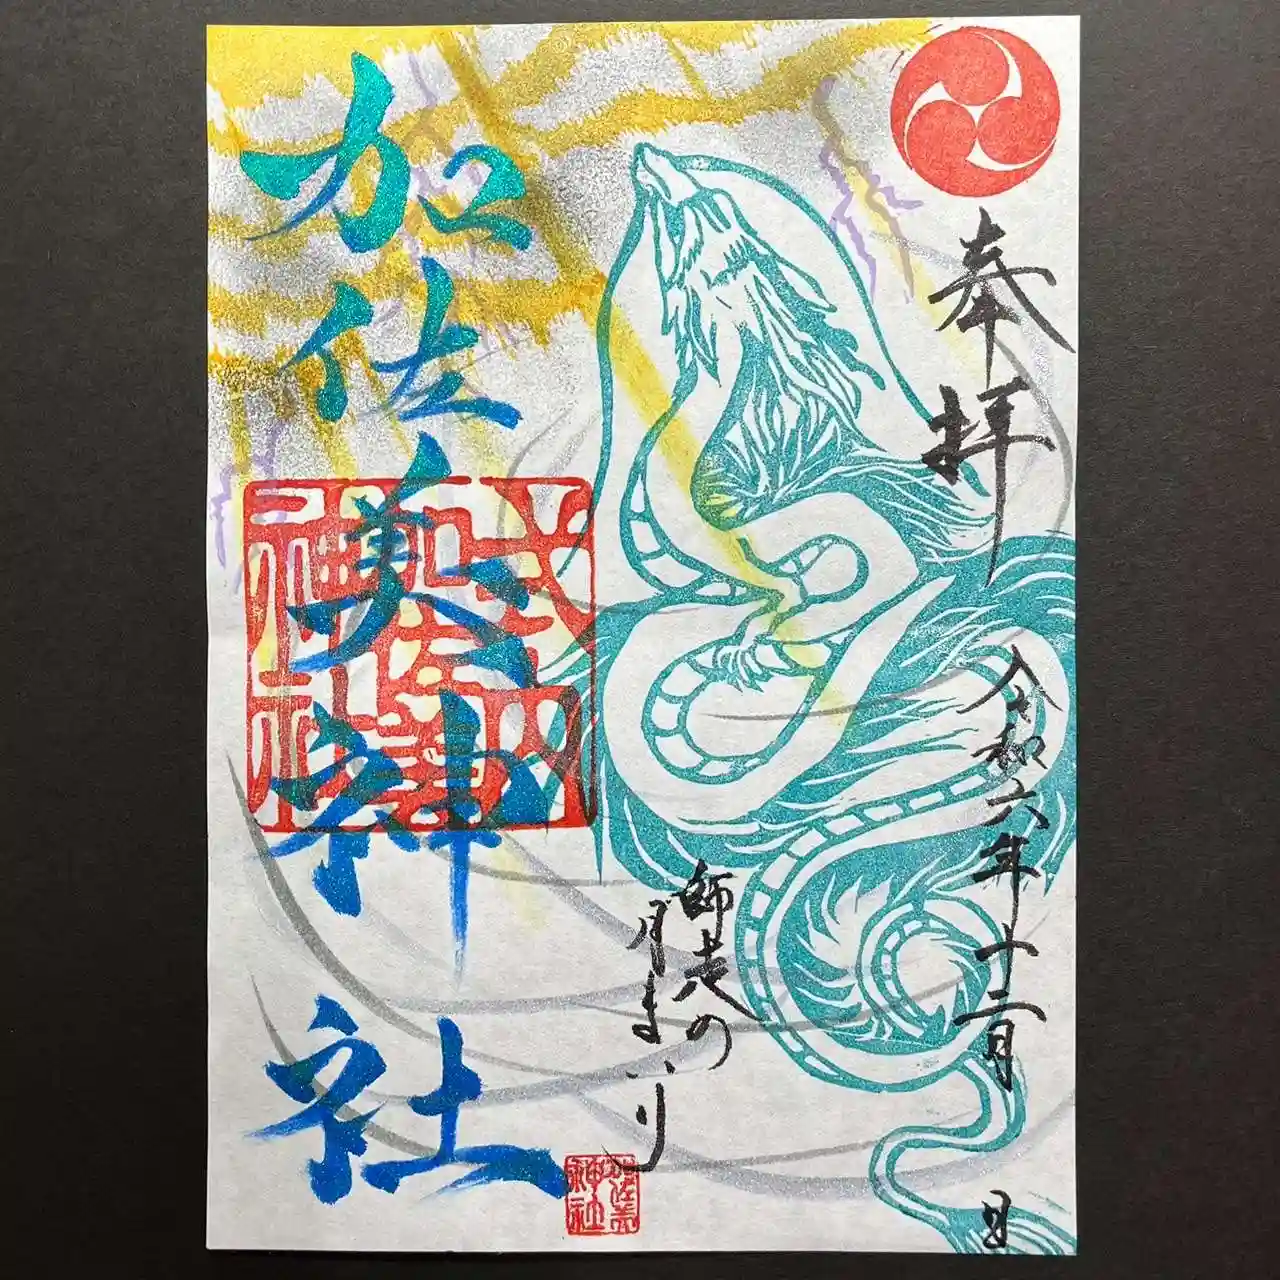 奉拝
令和六年十二月 日
師走の
月まいり
加佐美神社
式内
加佐美
神社
加佐美
神社